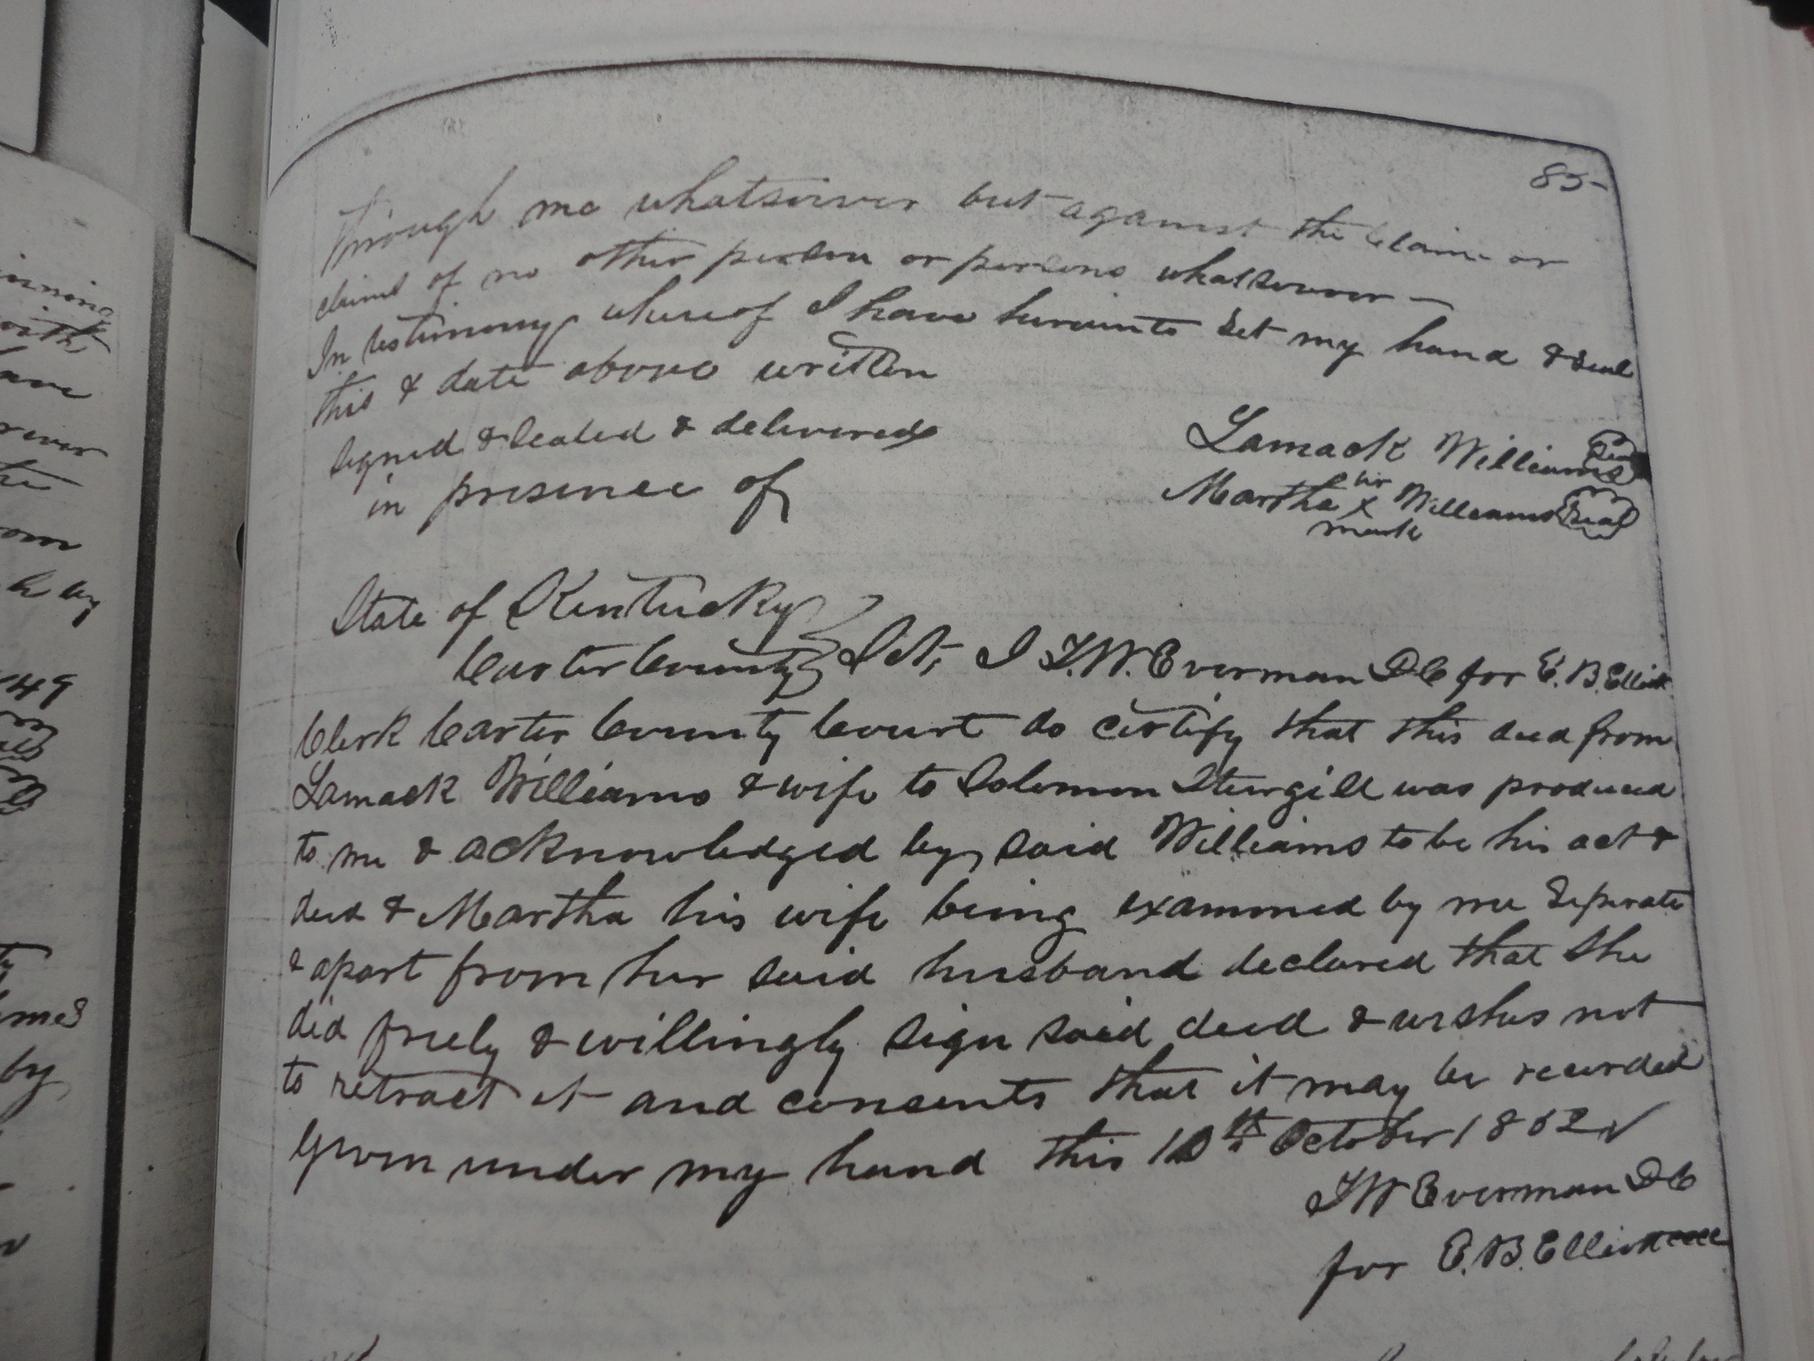 85
through me whatsoiver but against the Claim or
claims of no other person or persons whatsoever —
In testimony whereof I have hereunto Set my hand & Seal
this & date above written
Signed & Sealed & delivered
in presence of
Lamack Williams Seal
her
Martha x Williams Seal
mark
State of Kentucky
Carter County Sct, I T.W. Everman DC for E.B. Elliott
Clerk Carter County Court do certify that this deed from
Lamack Williams & wife to Solomon Sturgill was produced
to me & acknowledged by said Williams to be his act &
deed & Martha his wife being examined by me Seperate
& apart from her said husband declared that She
did freely & willingly sign said deed & wishes not
to retract it and consents that it may be recorded
Given under my hand this 10th October 1862
TW Everman DC
for E.B. Elliott